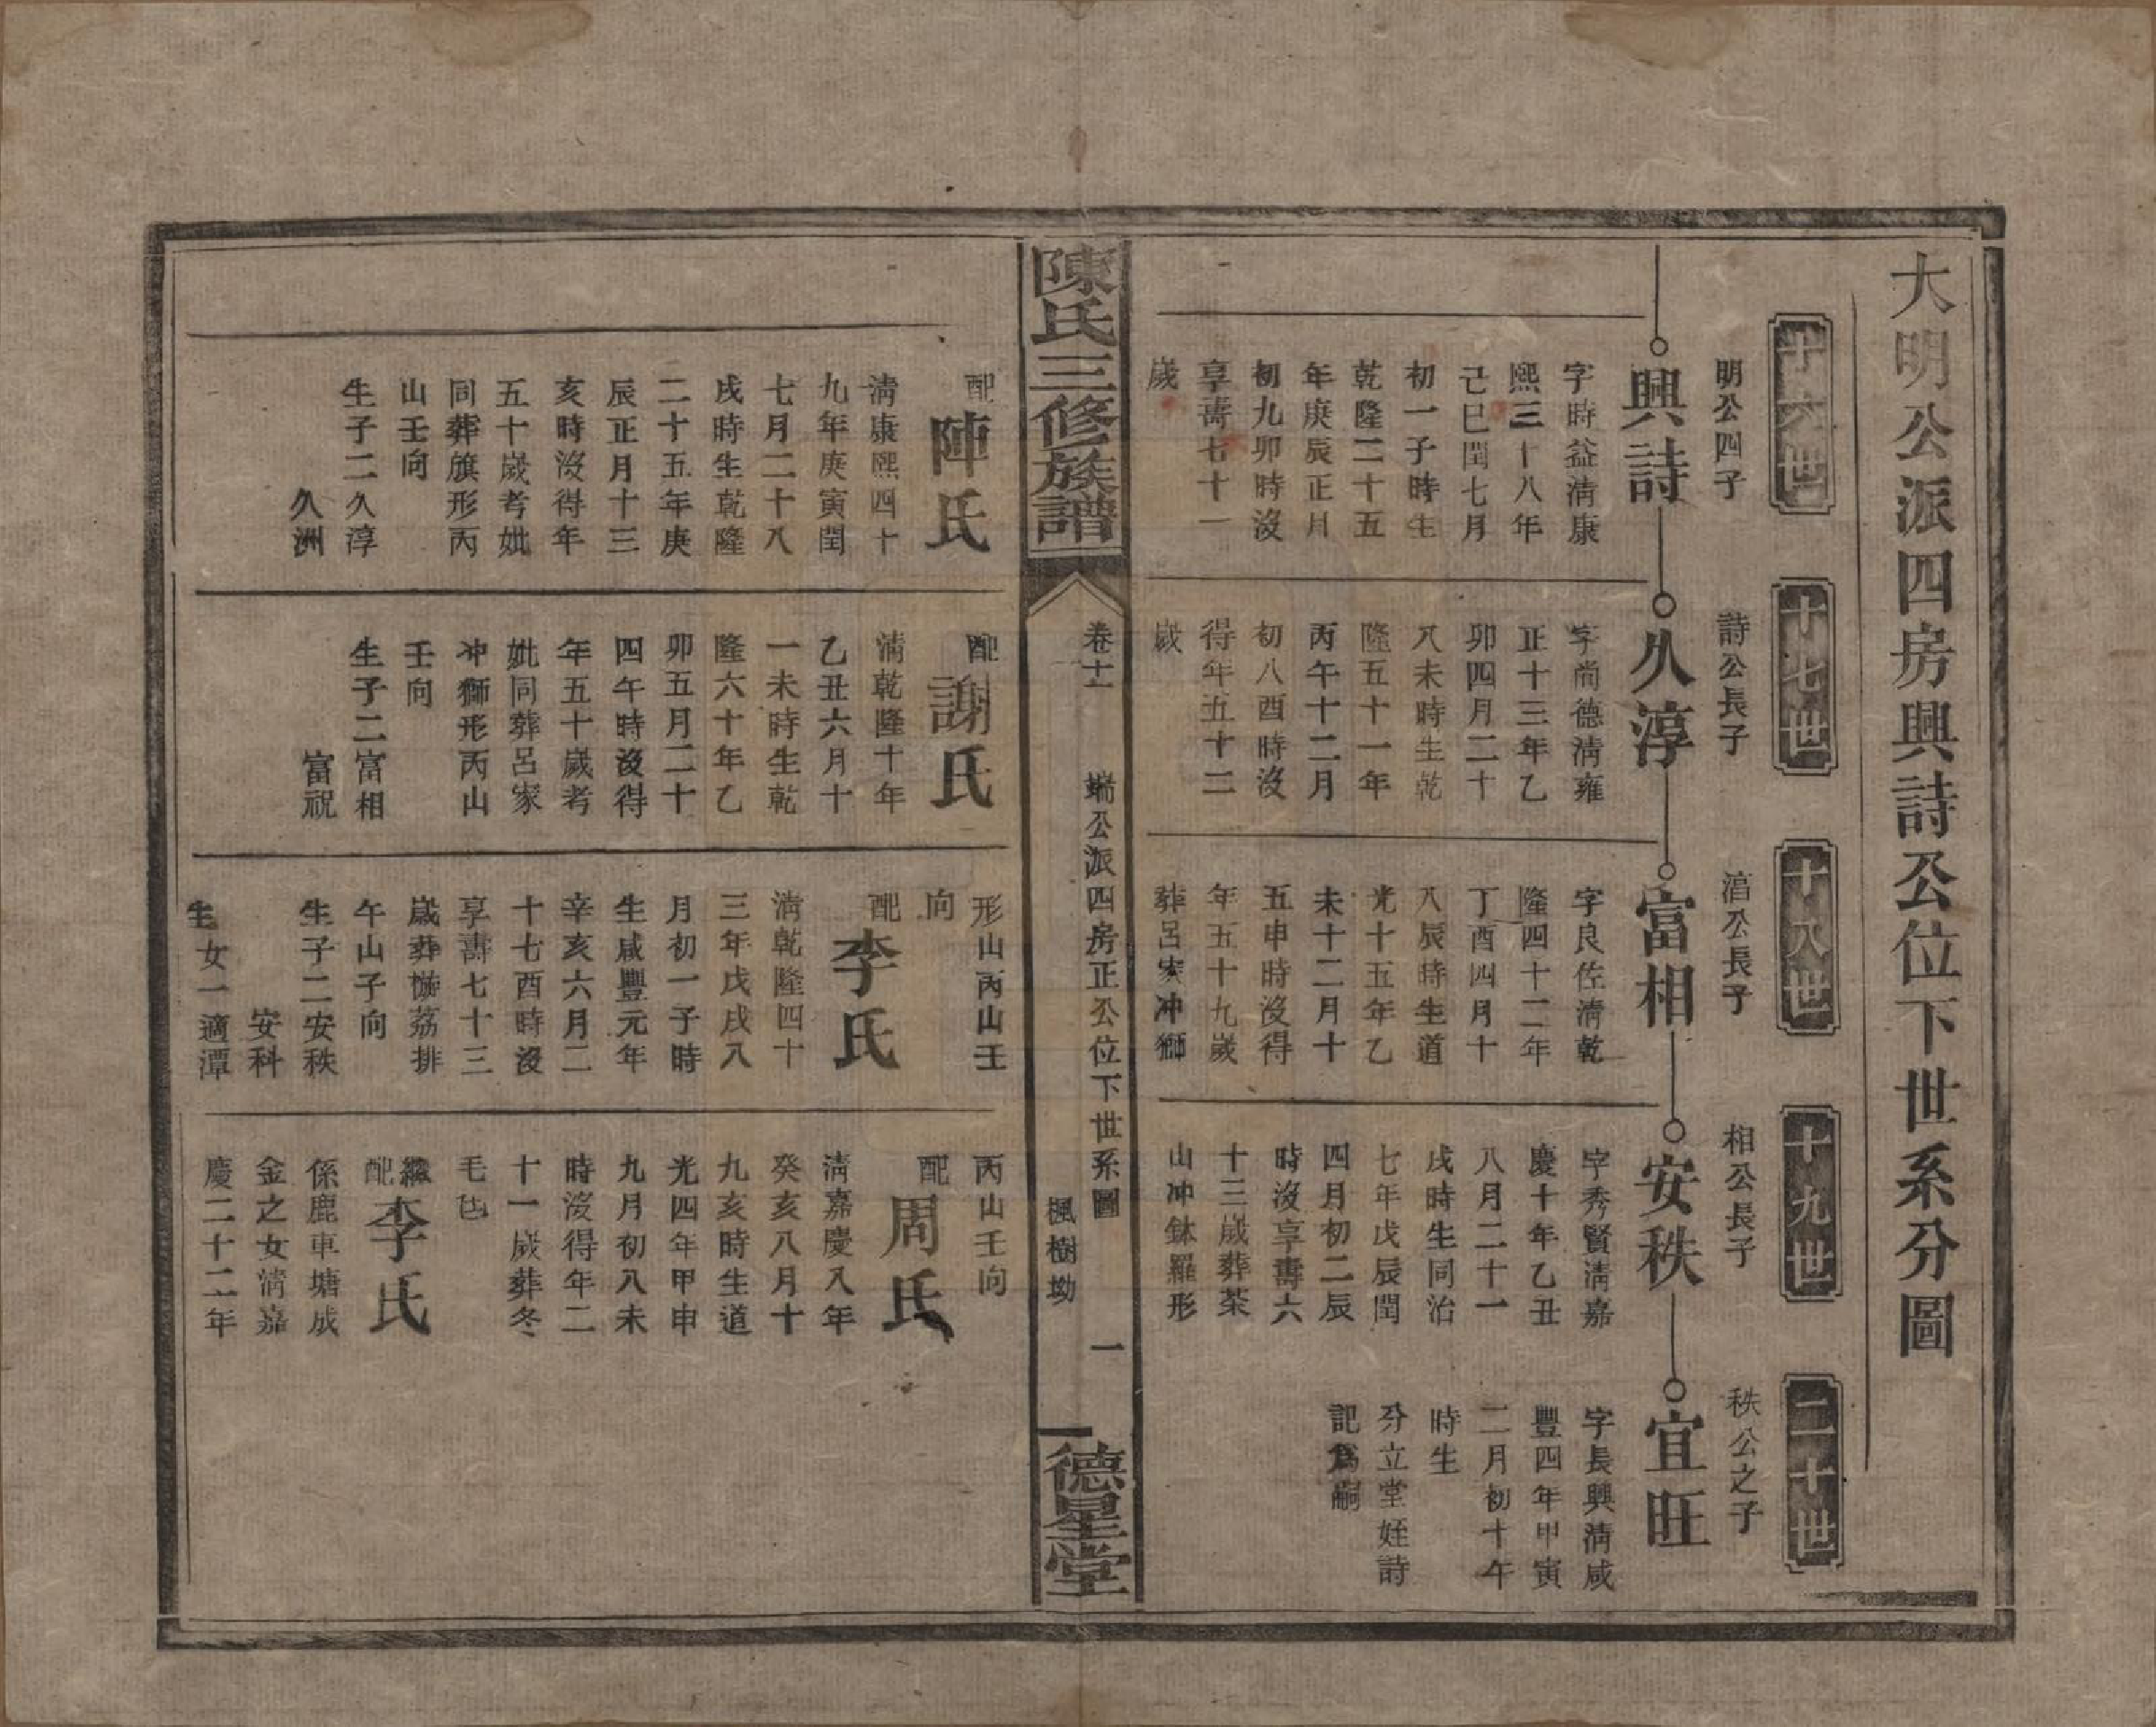 大明公派四房興詩公位下世系分圖
十六世
十七世
十八世
十九世
二十世
明公四子
興詩
字時益淸康
熙三十八年
己巳閏七月
初一子時生
乾隆二十五
年庚辰正月
初九卯時沒
享壽七十一
歲
詩公長子
久淳
字尚德淸雍
正十三年乙
卯四月二十
八未時生乾
隆五十一年
丙午十二月
初八酉時沒
得年五十二
歲
淳公長子
富相
字良佐淸乾
隆四十二年
丁酉四月十
八辰時生道
光十五年乙
未十二月十
五申時沒得
年五十九歲
葬呂家冲獅
相公長子
安秩
字秀賢淸嘉
慶十年乙丑
八月二十一
戌時生同治
七年戊辰閏
四月初二辰
時沒享壽六
十三歲葬茶
山冲鉢羅形
秩公之子
宜旺
字長興淸咸
豐四年甲寅
二月初十午
時生
分立堂姪詩
記爲嗣
陳氏三修族譜
卷十一
端公派四房正公位下世系圖
楓樹坳
一
德星堂
配
陣氏
淸康熙四十
九年庚寅閏
七月二十八
戌時生乾隆
二十五年庚
辰正月十三
亥時沒得年
五十歲考妣
同葬旗形丙
山壬向
生子二久淳
久洲
配
謝氏
淸乾隆十年
乙丑六月十
一未時生乾
隆六十年乙
卯五月二十
四午時沒得
年五十歲考
妣同葬呂家
冲獅形丙山
壬向
生子二富相
富祝
形山丙山壬
向
配
李氏
淸乾隆四十
三年戊戌八
月初一子時
生咸豐元年
辛亥六月二
十七酉時沒
享壽七十三
歲葬荔排
午山子向
生子二安秩
安科
生女一適潭
丙山壬向
配
周氏
淸嘉慶八年
癸亥八月十
九亥時生道
光四年甲申
九月初八未
時沒得年二
十一歲葬冬
毛
繼配
李氏
係鹿車塘成
金之女淸嘉
慶二十二年